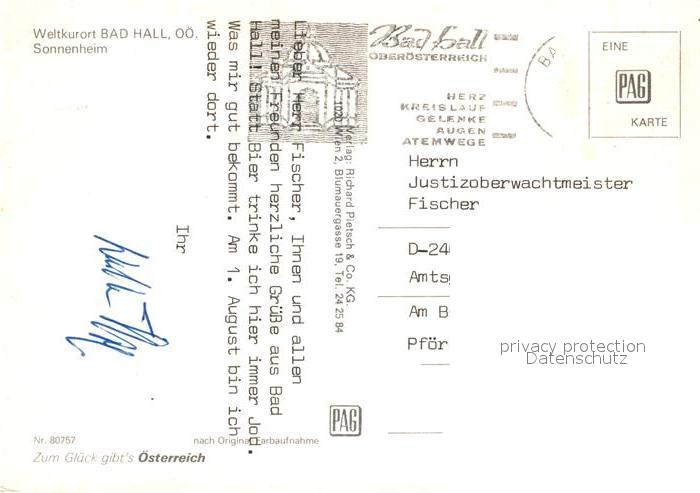 Weltkurort BAD HALL, OÖ.
Sonnenheim
Bad Hall
OBERÖSTERREICH
HERZ
KREISLAUF
GELENKE
AUGEN
ATEMWEGE
BA
EINE
PAG
KARTE
Lieber Herr Fischer, Ihnen und allen
meinen Freunden herzliche Grüße aus Bad
Hall! Statt Bier trinke ich hier immer Jod.
Was mir gut bekommt. Am 1. August bin ich
wieder dort.
Ihr
Verlag: Richard Pietsch & Co. KG.
1020 Wien 2, Blumauergasse 19, Tel. 24 25 84
Herrn
Justizoberwachtmeister
Fischer
D-24
Amts
Am B
Pför
privacy protection
Datenschutz
PAG
Nr. 80757
nach Original Farbaufnahme
Zum Glück gibt's Österreich